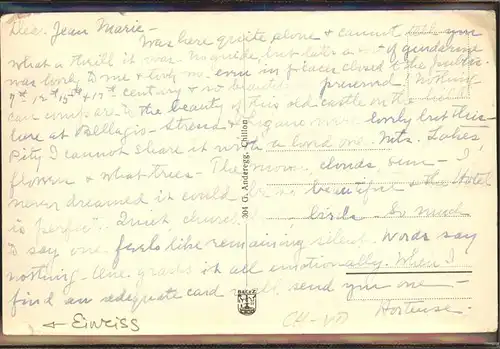 Dear Jean Marie -
Was here quite alone & cannot tell you
what a thrill it was. No guide, but later a of gendarme
was lovely to me & took me even in places closed to the public.
7th 12th 15th & 17th century & so beautif preserved! Nothing
can compare to the beauty of this old castle on the
here at Bellagio - Stresa & Lugano were lovely but this -
Pity I cannot share it with a loved one. Mts. Lakes,
flowers & what - trees - The moon, clouds sun - I
never dreamed it could be so beautiful & the Hotel
is perfect. Quiet, church birds. So much
I say one feels like remaining silent. Words say
nothing - One grasps it all emotionally. When I
find an adequate card will send you one -
Hortense.
304 G. Anderegg, Chillon
← Einriss
CH-VD